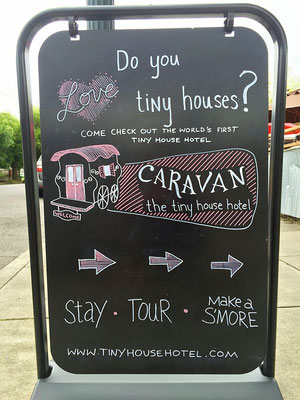 Do you
Love tiny houses?
COME CHECK OUT THE WORLD'S FIRST
TINY HOUSE HOTEL
CARAVAN
the tiny house hotel
WELCOME
Stay · TOUR · Make a
S'MORE
WWW.TINYHOUSEHOTEL.COM